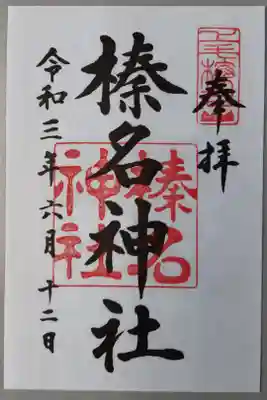 奉拝
榛名神社
榛名神社
令和三年六月十二日